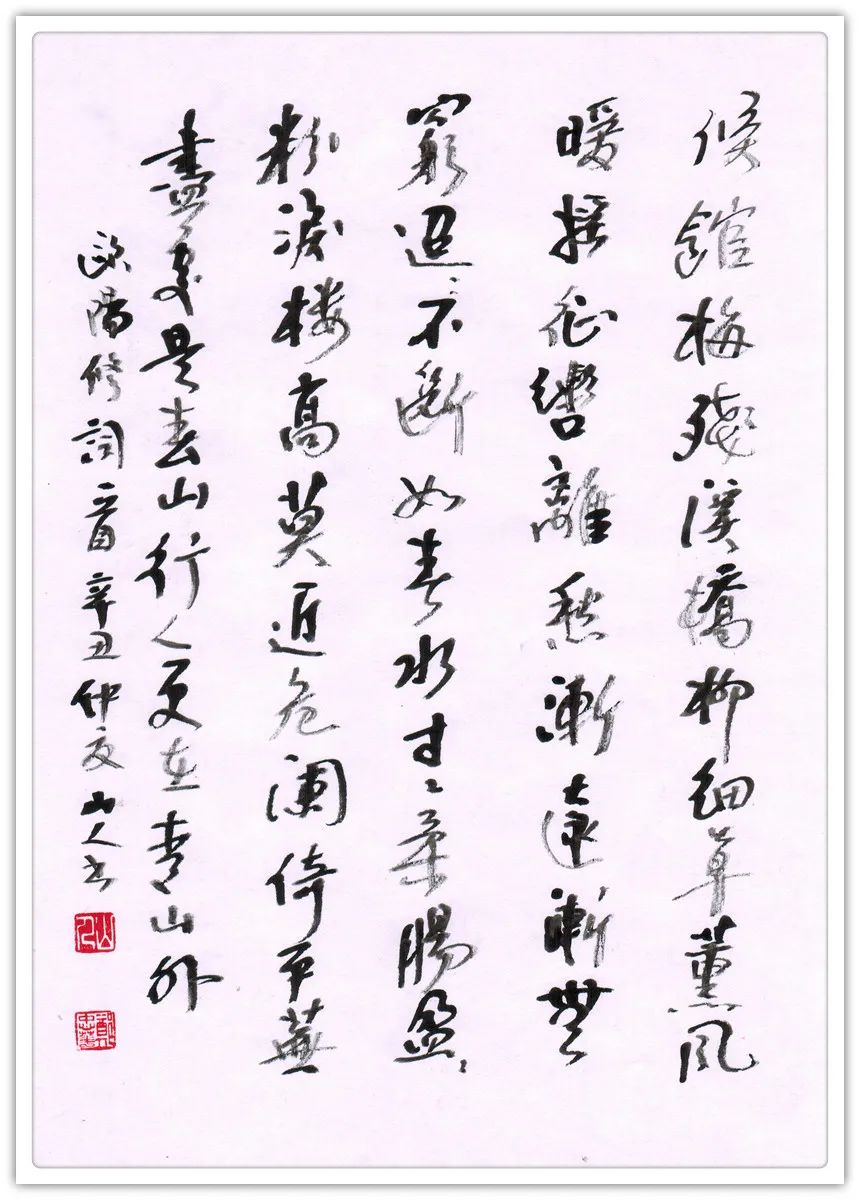 候館梅殘溪橋柳細草薰風
暖搖征轡離愁漸遠漸無
窮迢〻不斷如春水寸〻柔腸盈〻
粉淚楼高莫近危闌倚平蕪
盡處是春山行人更在青山外
歐陽修詞一首辛丑仲夏山人书
山人